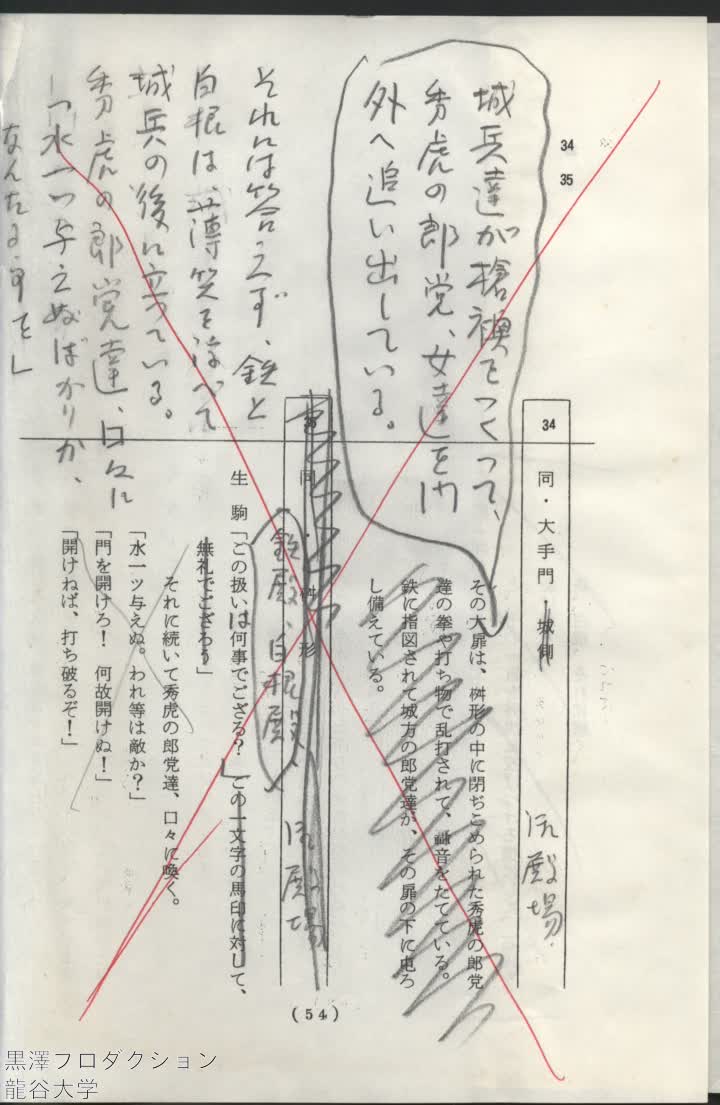 34
35
城兵達が槍襖をつくって、
秀虎の郎党、女達を門
外へ追い出している。
それには答えず、鉄と
白根は、薄笑を浮べて
城兵の後に立っている。
秀虎の郎党達、口々に
「水一ツ与えぬばかりか、
なんたる事を」
34
同・大手門・城側
御殿場
その大扉は、桝形の中に閉ぢこめられた秀虎の郎党
達の拳や打ち物で乱打されて、轟音をたてている。
鉄に指図されて城方の郎党達が、その扉の下に屯ろ
し備えている。
35
同・桝形
御殿場
鉄殿、白根殿
生駒「この扱いは何事でござる?」この一文字の馬印に対して、
無礼でござろう」
それに続いて秀虎の郎党達、口々に喚く。
「水一ツ与えぬ。われ等は敵か?」
「門を開けろ! 何故開けぬ!」
「開けねば、打ち破るぞ!」
(54)
黒澤プロダクション
龍谷大学